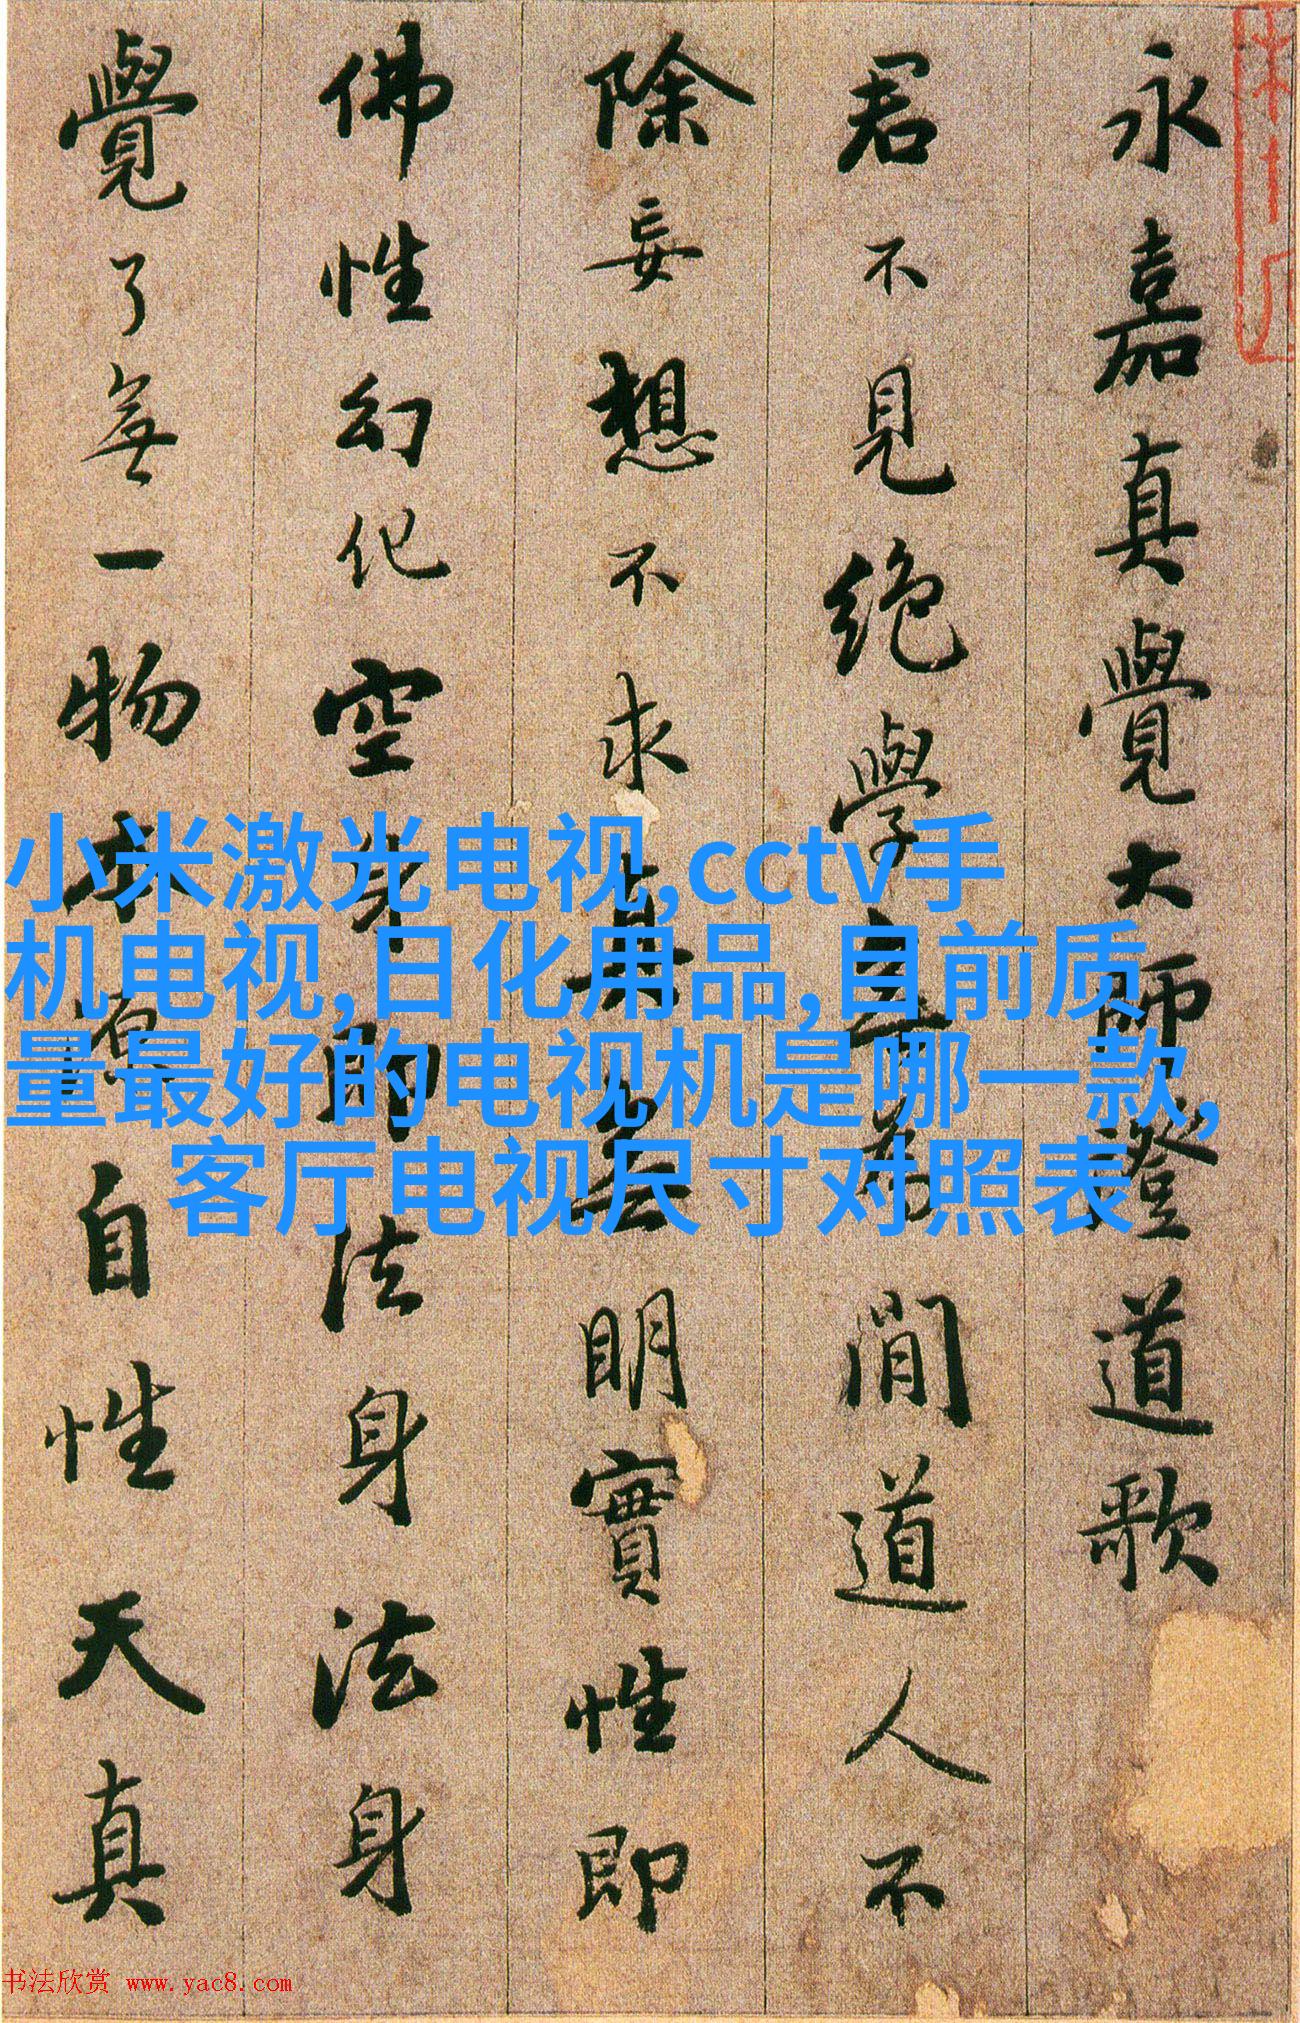 永嘉真覺大師證道歌
君不見絕學無為閒道人不
除妄想不求真無明實性即
佛性幻化空身即法身法身
覺了無一物本源自性天真
小米激光电视,cctv手
机电视,日化用品,目前质
量最好的电视机是哪一款,
客厅电视尺寸对照表
书法欣赏 www.yac8.com